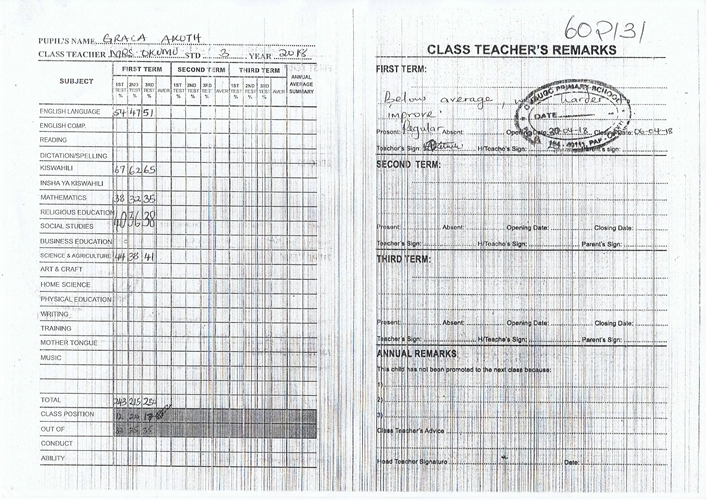 60P131
PUPIL'S NAME GRACA AKOTH
CLASS TEACHER MRS. OKUMU STD 3 YEAR 2018
SUBJECT
FIRST TERM SECOND TERM THIRD TERM ANNUAL AVERAGE SUMMARY
1ST TEST % 2ND TEST % 3RD TEST % AVER 1ST TEST % 2ND TEST % 3RD TEST % AVER 1ST TEST % 2ND TEST % 3RD TEST % AVER
ENGLISH LANGUAGE 54 47 51
ENGLISH COMP.
READING
DICTATION/SPELLING
KISWAHILI 67 62 65
INSHA YA KISWAHILI
MATHEMATICS 38 32 35
RELIGIOUS EDUCATION
SOCIAL STUDIES 40 36 38
BUSINESS EDUCATION
SCIENCE & AGRICULTURE 44 38 41
ART & CRAFT
HOME SCIENCE
PHYSICAL EDUCATION
WRITING
TRAINING
MOTHER TONGUE
MUSIC
TOTAL 243 215
CLASS POSITION
OUT OF
CONDUCT
ABILITY
CLASS TEACHER'S REMARKS
FIRST TERM:
Below average, harder
improve
Present: Regular Absent: Opening Date: 04-18 Closing Date: 06-04-18
Teacher's Sign: H/Teache's Sign: Parent's sign:
PRIMARY SCHOOL
DATE
SECOND TERM:
Present: Absent: Opening Date: Closing Date:
Teacher's Sign: H/Teache's Sign: Parent's Sign:
THIRD TERM:
Present: Absent: Opening Date: Closing Date:
Teacher's Sign: H/Teache's Sign: Parent's Sign:
ANNUAL REMARKS
This child has not been promoted to the next class because:
1)
2)
3)
Class Teacher's Advice
Head Teacher Signature Date: